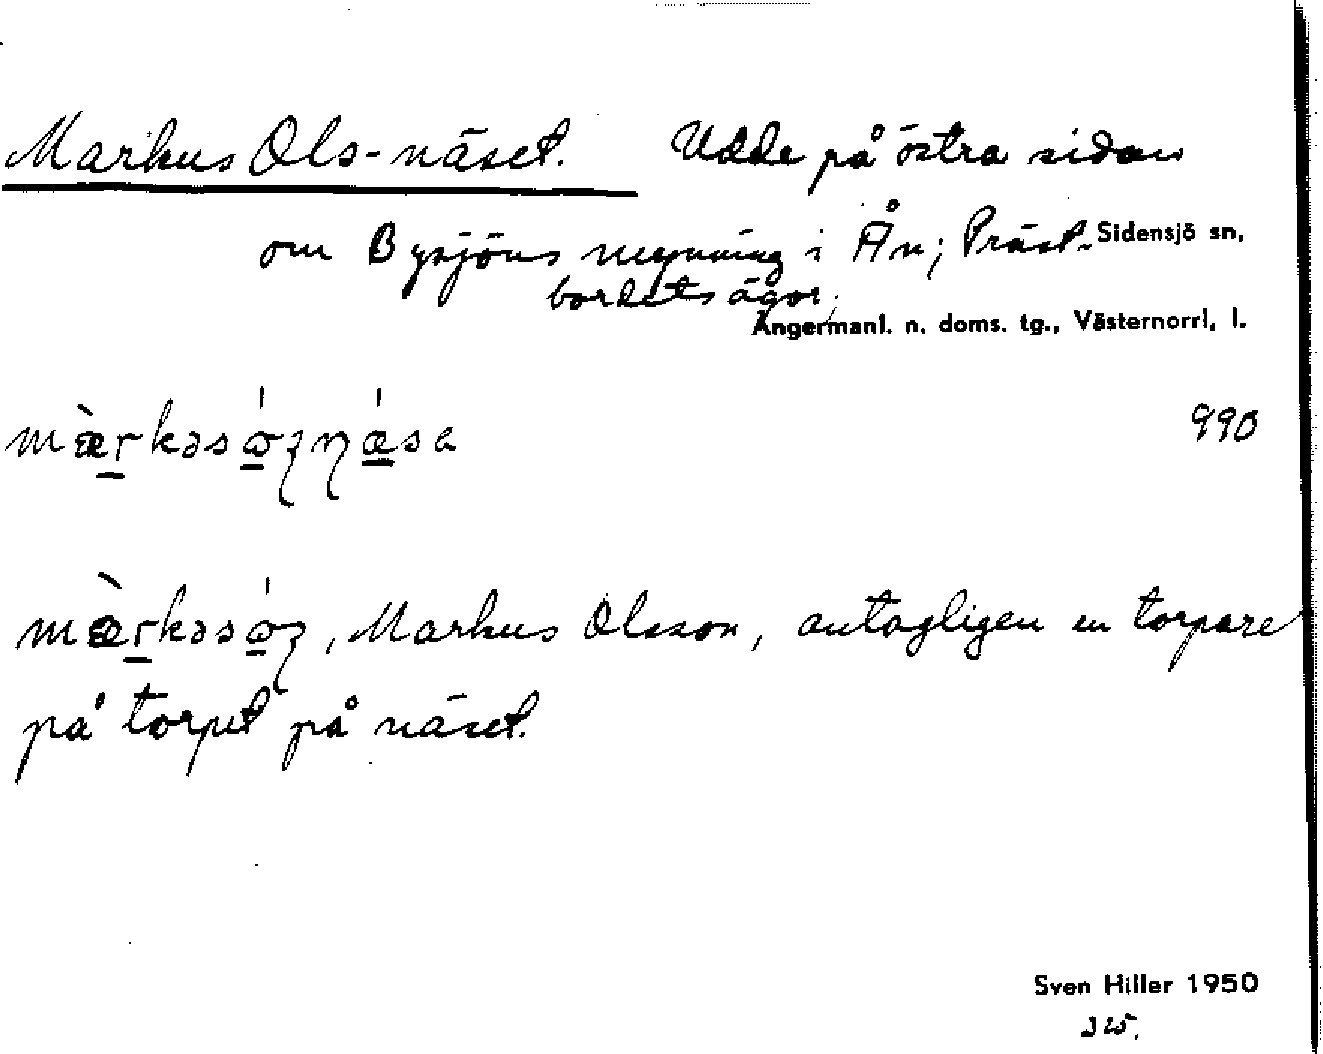 Markus Ols-näset. Udde på östra sidan
om Bysjöns mynning i Ån; Präst- Sidensjö sn,
bordets ägor.
Ångermanl. n. doms. tg., Västernorrl. l.
990
Markus Olsson, antagligen en torpare
på torpet på näset.
Sven Hiller 1950